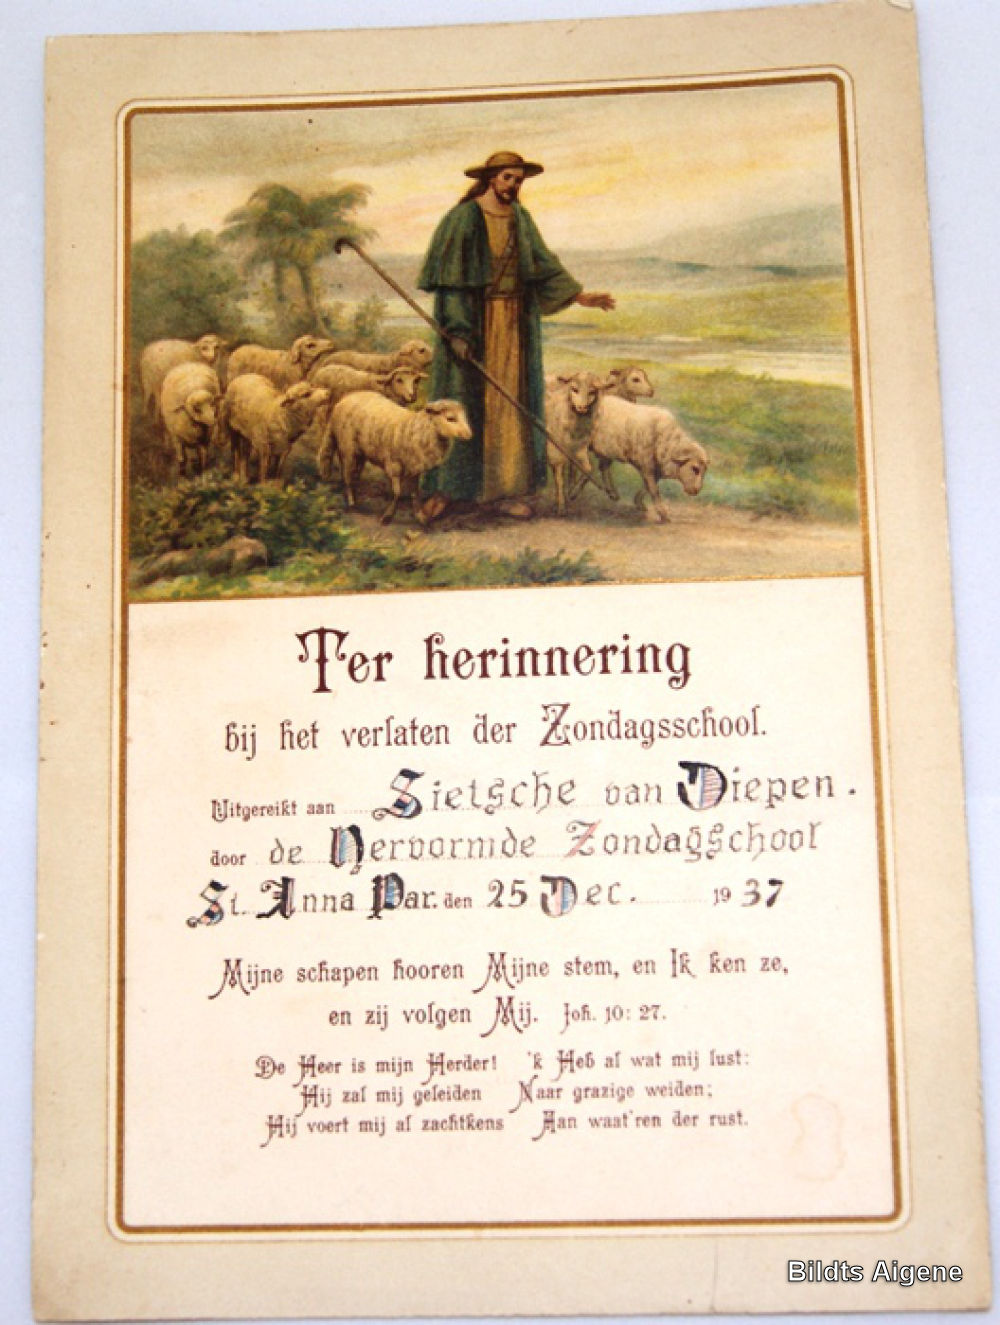 Ter herinnering
bij het verlaten der Zondagsschool.
Uitgereikt aan Sietsche van Diepen.
door de Hervormde Zondagschool
St. Anna Par. den 25 Dec. 1937
Mijne schapen hooren Mijne stem, en Ik ken ze,
en zij volgen Mij. Joh. 10: 27.
De Heer is mijn Herder! 'k Heb al wat mij lust:
Hij zal mij geleiden Naar grazige weiden;
Hij voert mij al zachtkens Aan waat'ren der rust.
Bildts Aigene